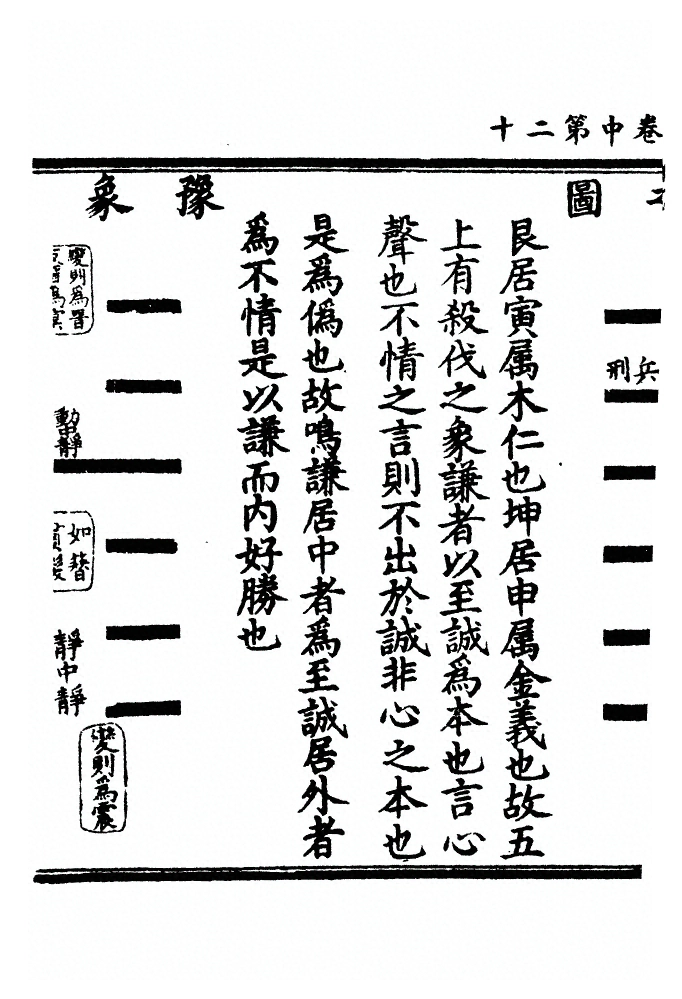 卷中第二十
圖
兵
刑
艮居寅属木仁也坤居申属金義也故五
上有殺伐之象謙者以至誠為本也言心
聲也不情之言則不出於誠非心之本也
是為僞也故鳴謙居中者為至誠居外者
為不情是以謙而内好勝也
豫象
動中靜
靜中靜
變則為晋
如簪
變則為震